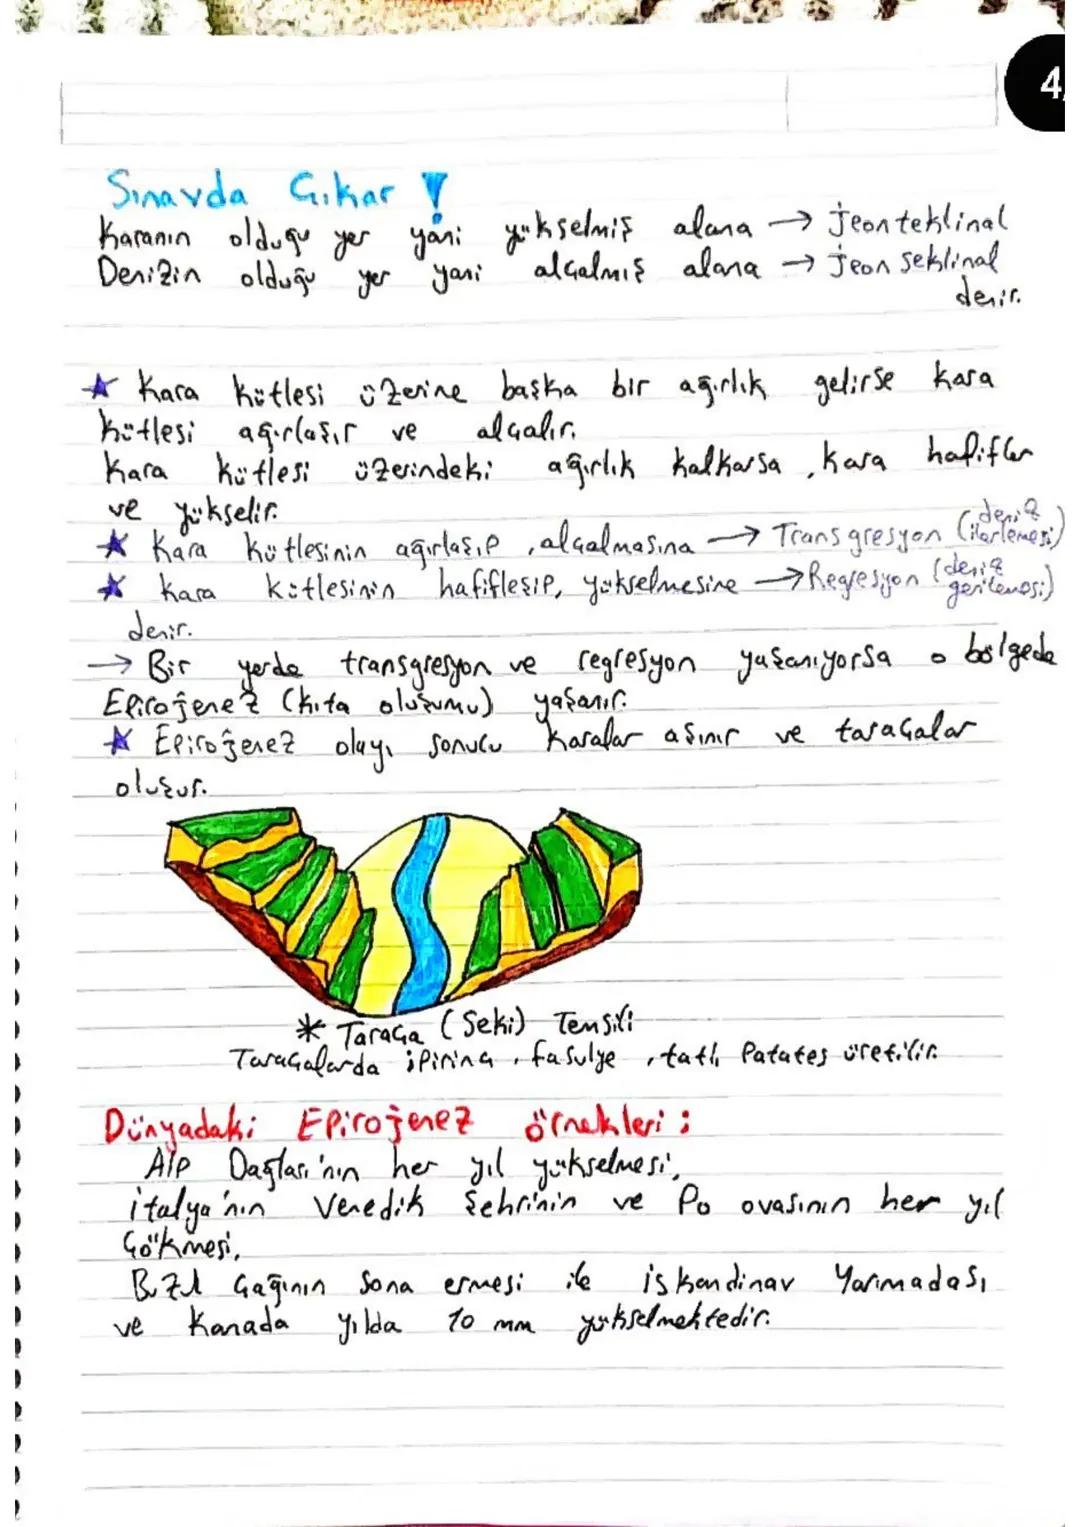 4
Sınavda Çıkar !
Karanın olduğu yer yani yükselmiş alana → jeonteklinal
Denizin olduğu yer yani alçalmış alana → jeon seklinal
denir.
★ Kara kütlesi üzerine başka bir ağırlık gelirse kara
kütlesi ağırlaşır ve alçalır.
Kara kütlesi üzerindeki ağırlık kalkarsa, kara hafifler
ve yükselir.
★ Kara kütlesinin ağırlaşıp, alçalmasına → Transgresyon (deniz ilerlemesi)
★ Kara kütlesinin hafifleşip, yükselmesine → Regresyon (deniz gerilemesi)
denir.
→ Bir yerde transgresyon ve regresyon yaşanıyorsa o bölgede
Epirojenez (kıta oluşumu) yaşanır.
★ Epirojenez olayı sonucu karalar aşınır ve taraçalar
oluşur.
* Taraça (Seki) Temsili
Taraçalarda ipirinç, fasulye, tatlı patates üretilir.
Dünyadaki Epirojenez örnekleri :
Alp Dağları'nın her yıl yükselmesi,
italya'nın Venedik Şehrinin ve Po ovasının her yıl
Çökmesi,
Buzul Çağının Sona ermesi ile iskandinav Yarımadası
ve Kanada yılda 10 mm yükselmektedir.